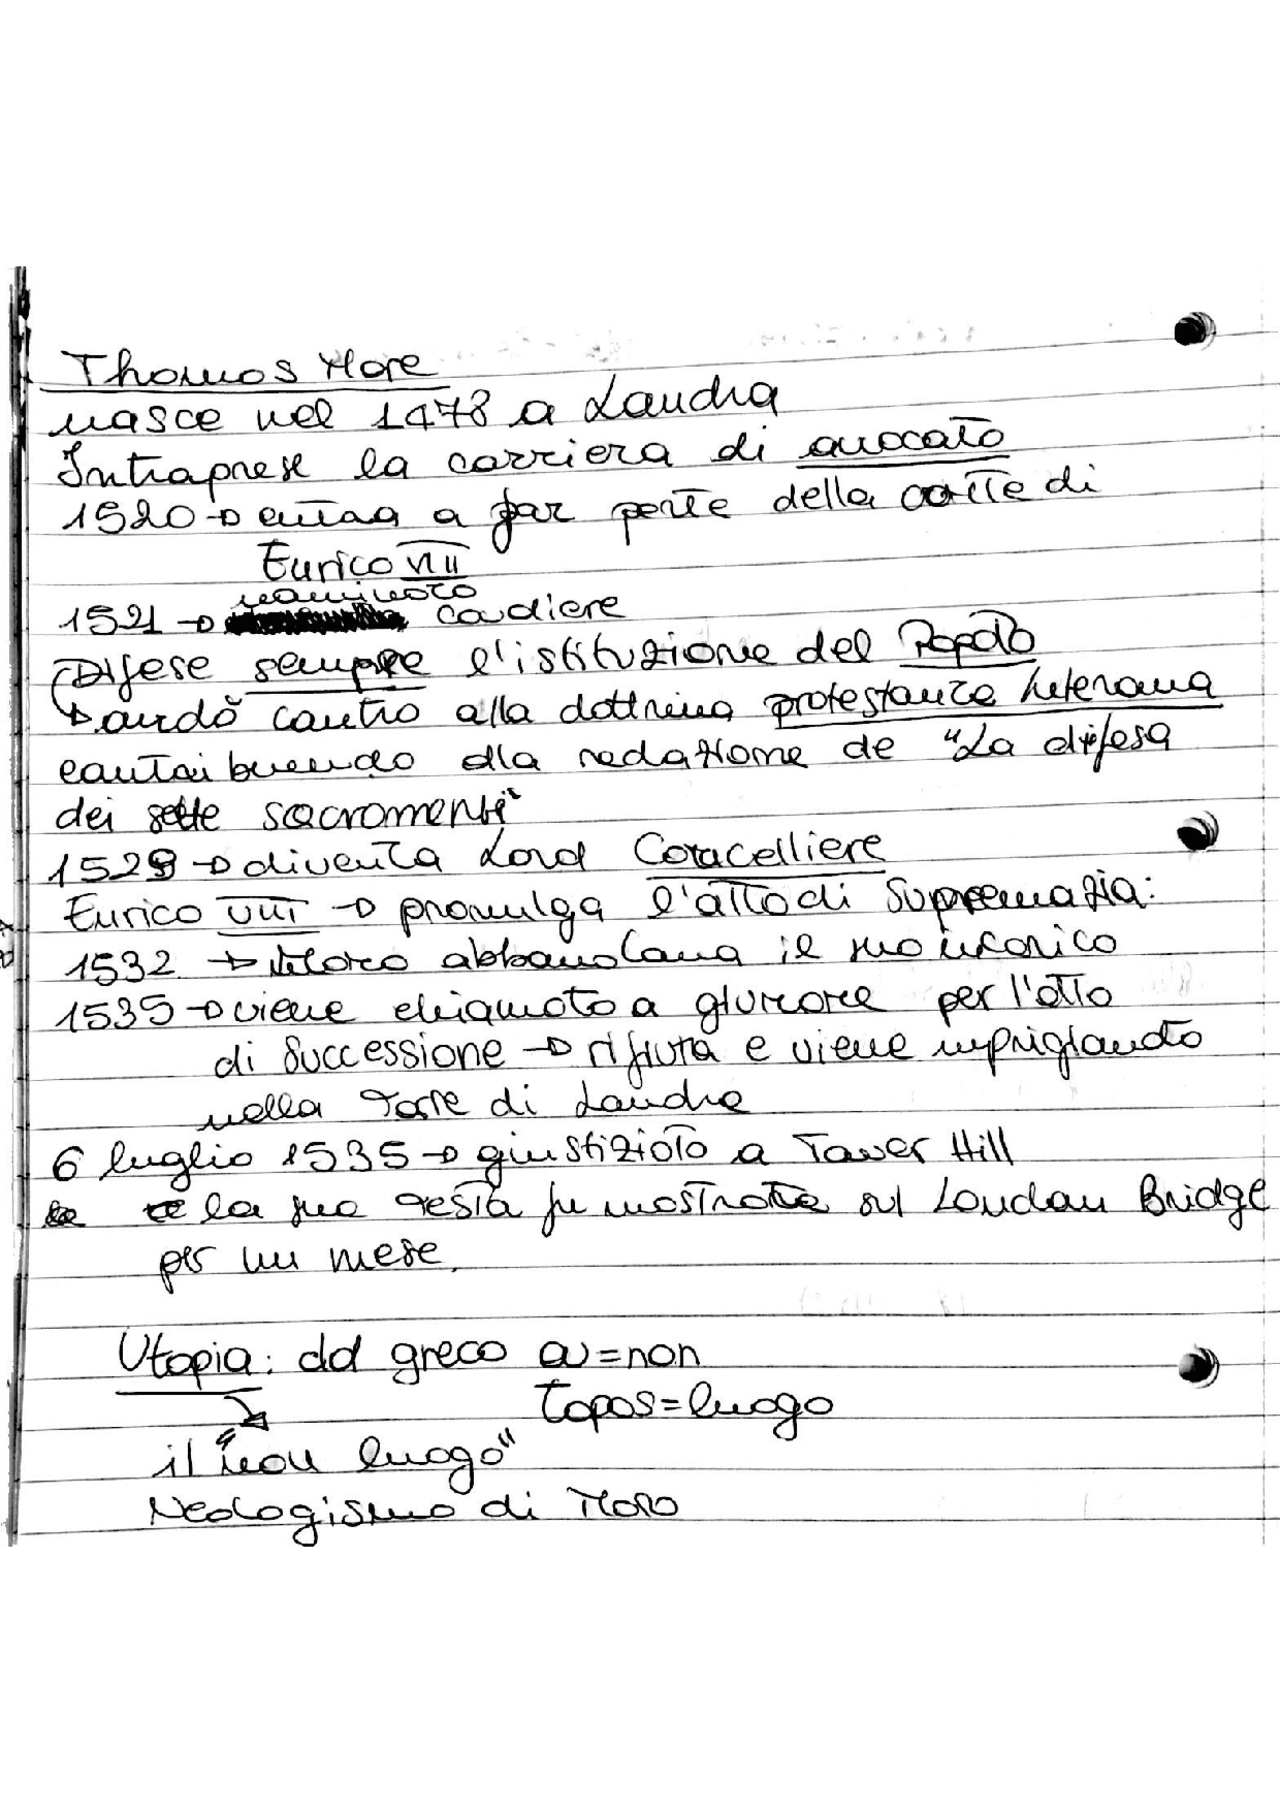 Thomas More
nasce nel 1478 a Londra
Intraprese la carriera di avvocato
1520 → entra a far parte della corte di
Enrico VIII
nominato
1521 → cavaliere
Difese sempre l'istituzione del Papato
→ andò contro alla dottrina protestante luterana
contribuendo alla redazione de "La difesa
dei sette sacramenti"
1529 → diventa Lord Cancelliere
Enrico VIII → promulga l'atto di Supremazia:
1532 → Moro abbandona il suo incarico
1535 → viene chiamato a giurare per l'atto
di Successione → rifiuta e viene imprigionato
nella Torre di Londra
6 luglio 1535 → giustiziato a Tower Hill
e la sua testa fu mostrata sul London Bridge
per un mese.
Utopia: dal greco ou = non
topos = luogo
il "non luogo"
Neologismo di Moro